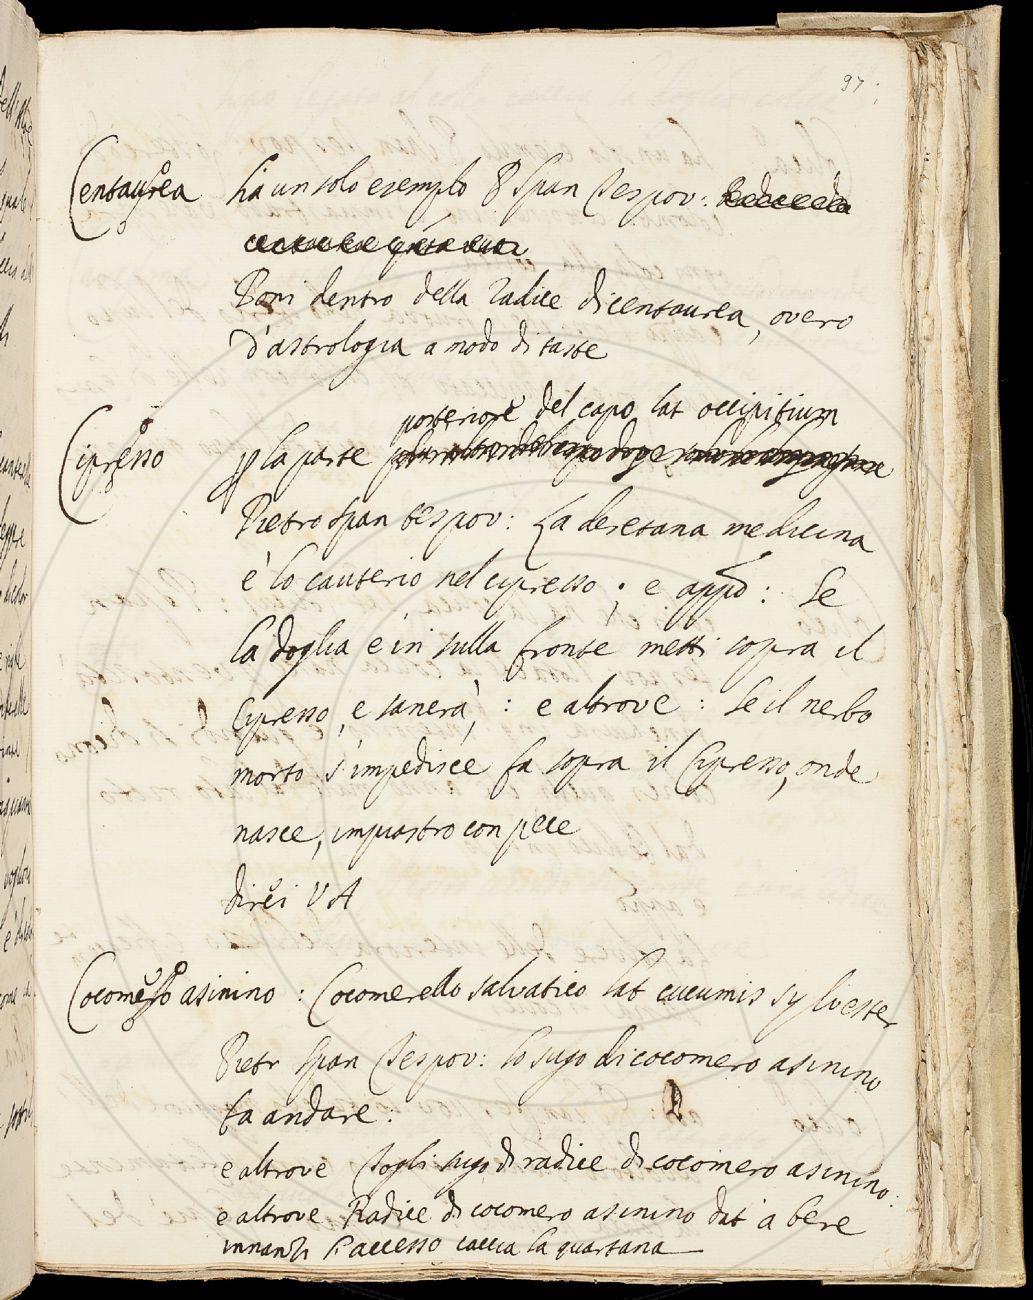 97
Centaurea ha un solo esempio P Span Tes pov:
Poni dentro della Radice di centaurea, overo
d'astrologia a modo di taste
posteriore del capo lat occipitium
Cipresso p la parte
Pietro Span tes pov: La deretana medicina
è lo cauterio nel cipresso; e appo: Se
la doglia è in sulla fronte metti sopra il
Cipresso, e sanerà,: e altrove: Se il nerbo
morto s'impedisce fa sopra il Cipresso, onde
nasce, impiastro con pece
direi VA
Cocomero asinino: Cocomerello salvatico lat cucumis sylvester
Pietr Span Tes pov: lo sugo di cocomero asinino
fa andare.
e altrove Togli sugo di radice di cocomero asinino.
e altrove Radice di cocomero asinino dat' a bere
innanzi l'accesso caccia la quartana